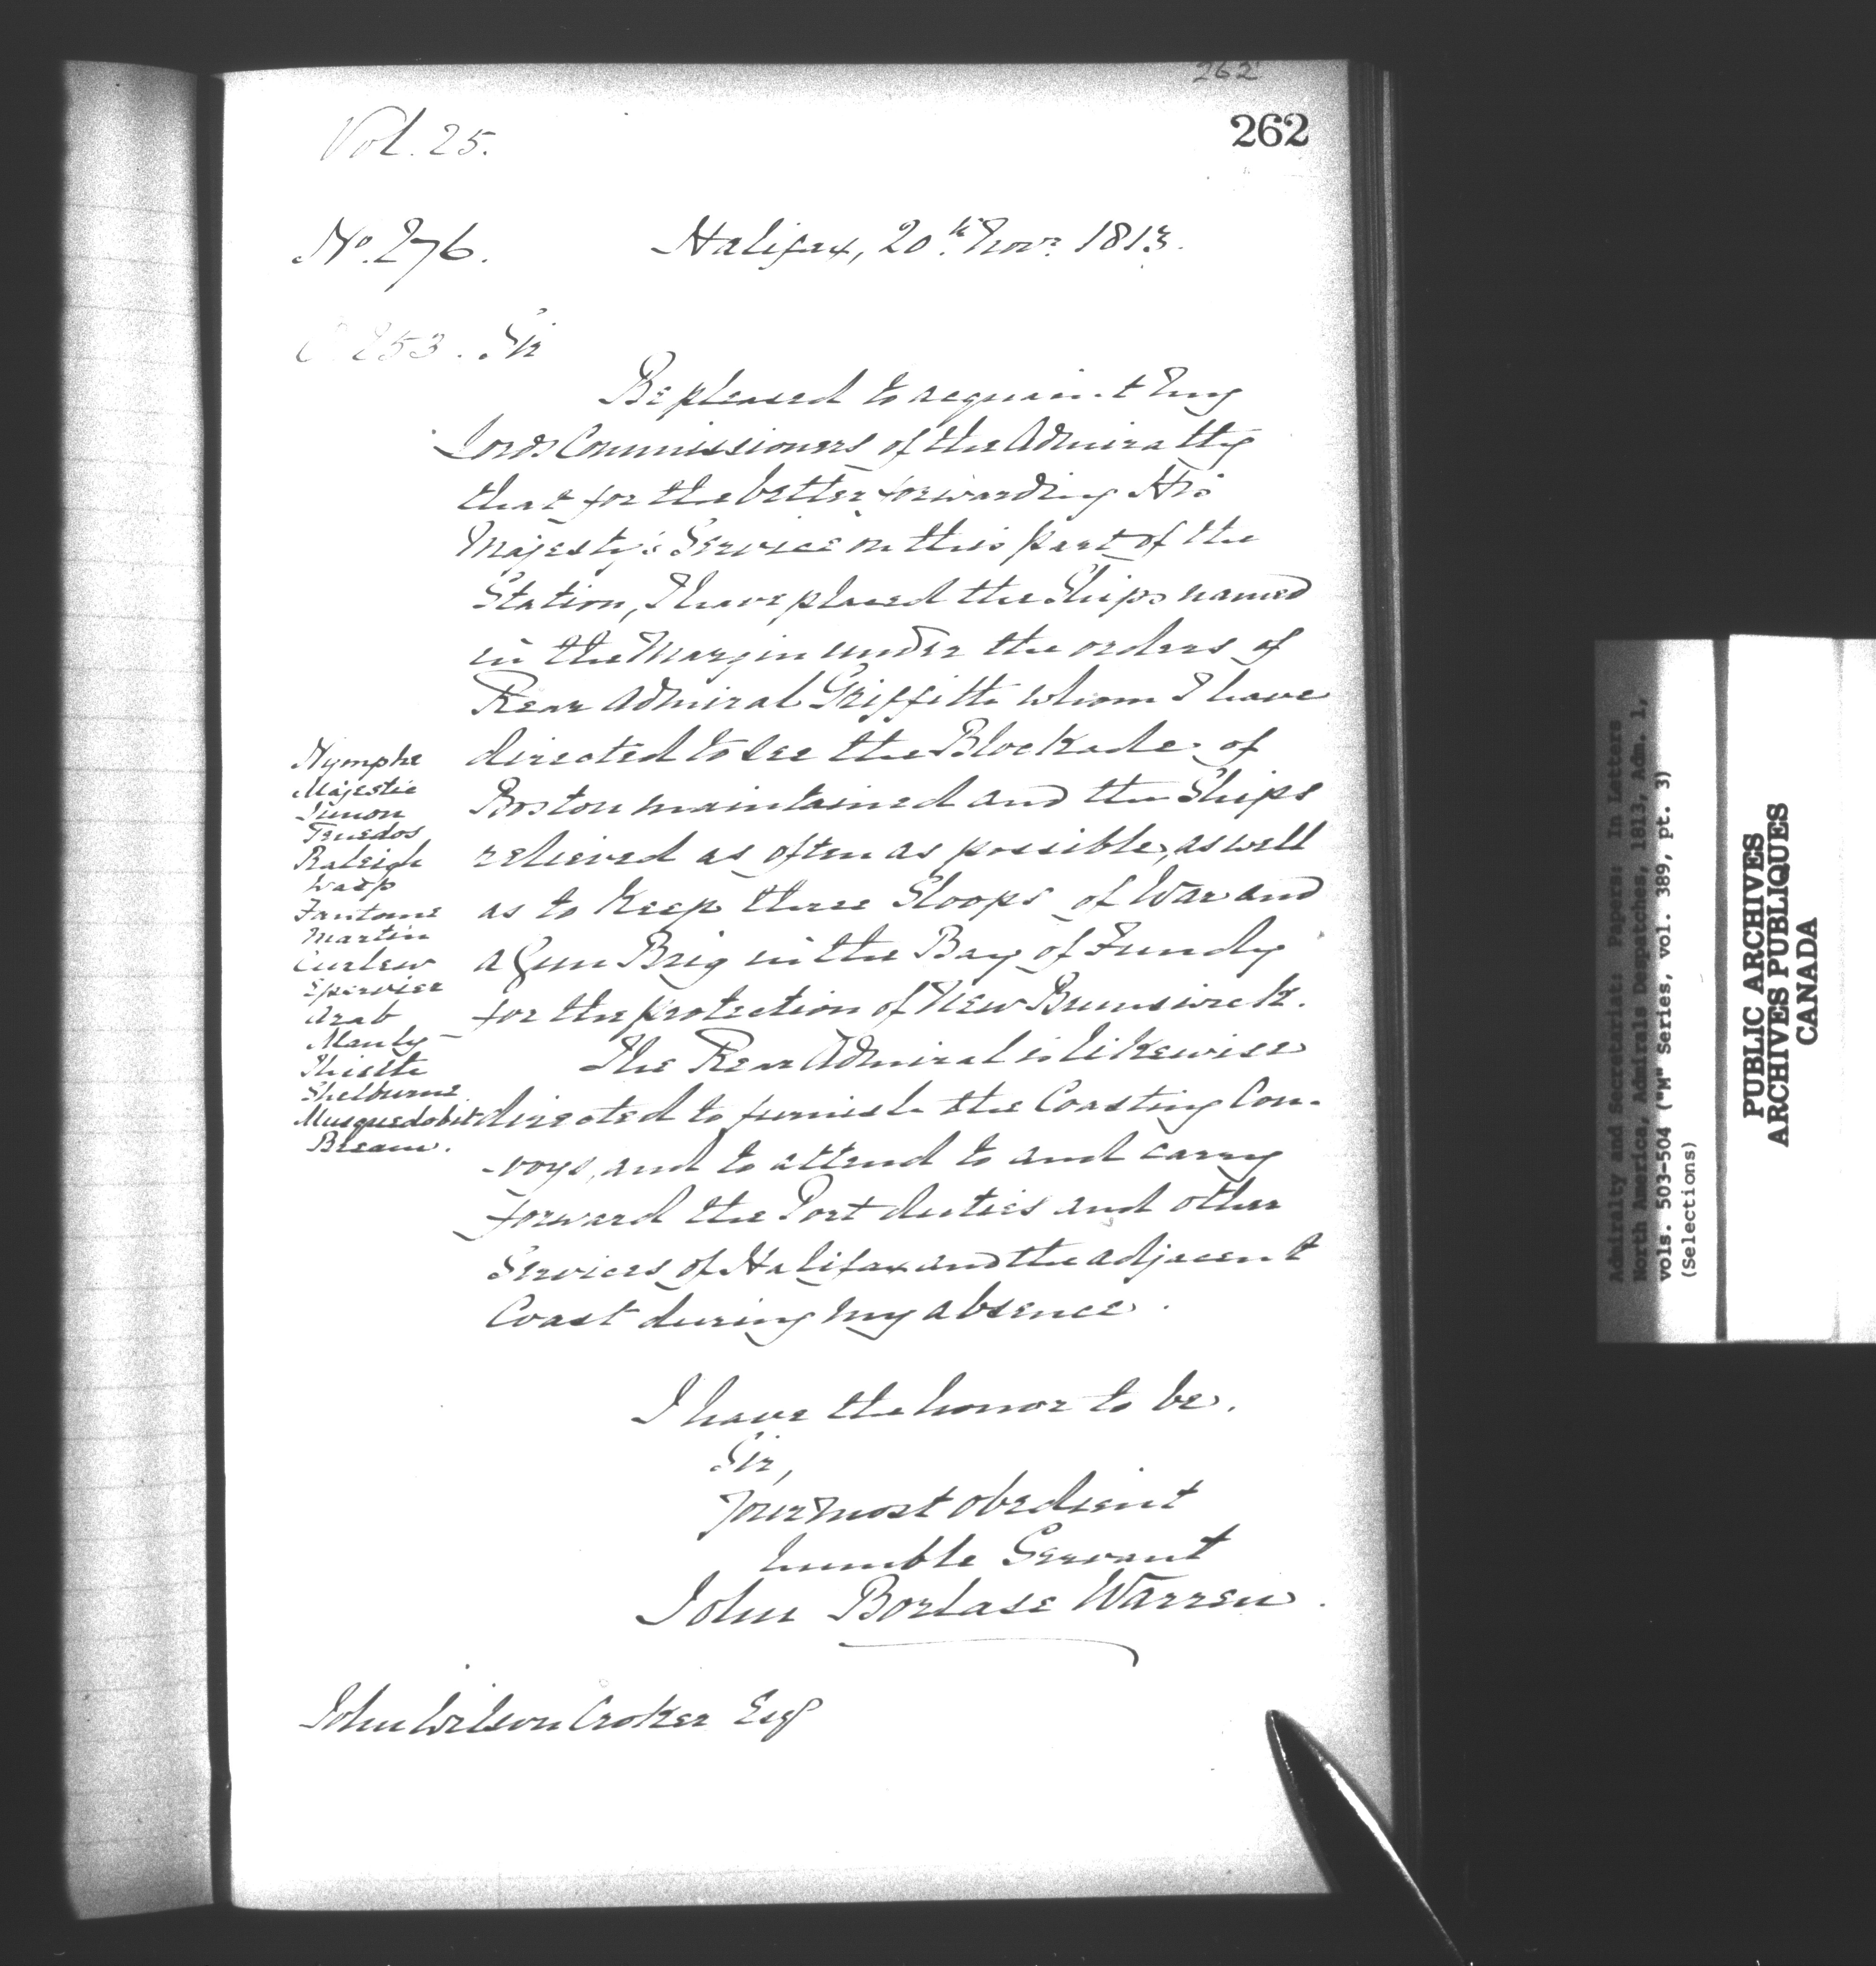 262
Vol. 25.
262
No. 276.
Halifax, 20th Novr 1813.
253. Sir
Be pleased to acquaint My
Lords Commissioners of the Admiralty
that for the better forwarding His
Majesty's Service on this part of the
Station, I have placed the Ships named
in the Margin under the orders of
Rear Admiral Griffith whom I have
directed to see the Blockade of
Boston maintained and the Ships
relieved as often as possible, as well
as to Keep three Sloops of War and
a Gun Brig in the Bay of Fundy
for the protection of New Brunswick.
Nymphe
Majestic
Junon
Tenedos
Raleigh
Wasp
Fantome
Martin
Curlew
Epervier
Arab
Manly
Thistle
Shelburne
Musquedobit
Bream.
The Rear Admiral is likewise
directed to furnish the Coasting Con-
-voys, and to attend to and carry
forward the Port duties and other
Services of Halifax and the adjacent
Coast during my absence.
I have the honor to be.
Sir,
Your most obedient
humble Servant
John Borlase Warren.
John Wilson Croker Esqr
Admiralty and Secretariat: Papers: In Letters
North America, Admirals Despatches, 1813, Adm. 1,
vols. 503-504 ("M" Series, vol. 389, pt. 3)
(selections)
PUBLIC ARCHIVES
ARCHIVES PUBLIQUES
CANADA